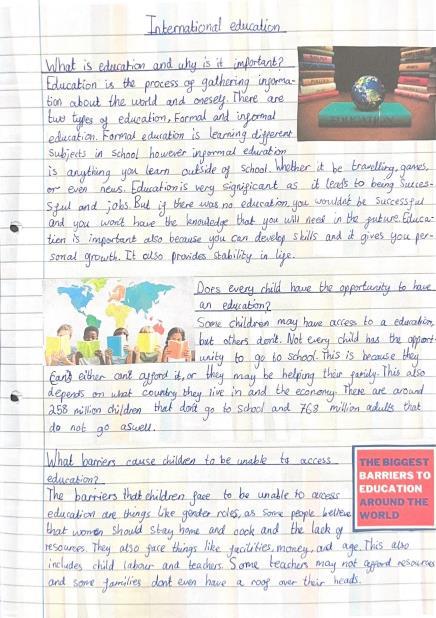 International education
What is education and why is it important?
Education is the process of gathering informa-
tion about the world and onesely. There are
two types of education, Formal and informal
education. Formal education is learning different
subjects in school however informal education
is anything you learn outside of school. Whether it be travelling, games,
or even news. Education is very significant as it leads to being succes-
sful and jobs. But if there was no education, you wouldnt be successful
and you won't have the knowledge that you will need in the future. Educa-
tion is important also because you can develop skills and it gives you per-
sonal growth. It also provides stability in life.
EDUCATION
Does every child have the opportunity to have
an education?
Some children may have access to a education,
but others don't. Not every child has the opport-
unity to go to school. This is because they
can't either can't afford it, or they may be helping their family. This also
depends on what country they live in and the economy. There are around
258 million children that don't go to school and 768 million adults that
do not go aswell.
What barriers cause children to be unable to access
education?
The barriers that children face to be unable to access
education are things like gender roles, as some people believe
that women should stay home and cook and the lack of
resources. They also face things like facilities, money, and age. This also
includes child labour and teachers. Some teachers may not afford resources
and some families dont even have a roof over their heads.
THE BIGGEST
BARRIERS TO
EDUCATION
AROUND THE
WORLD